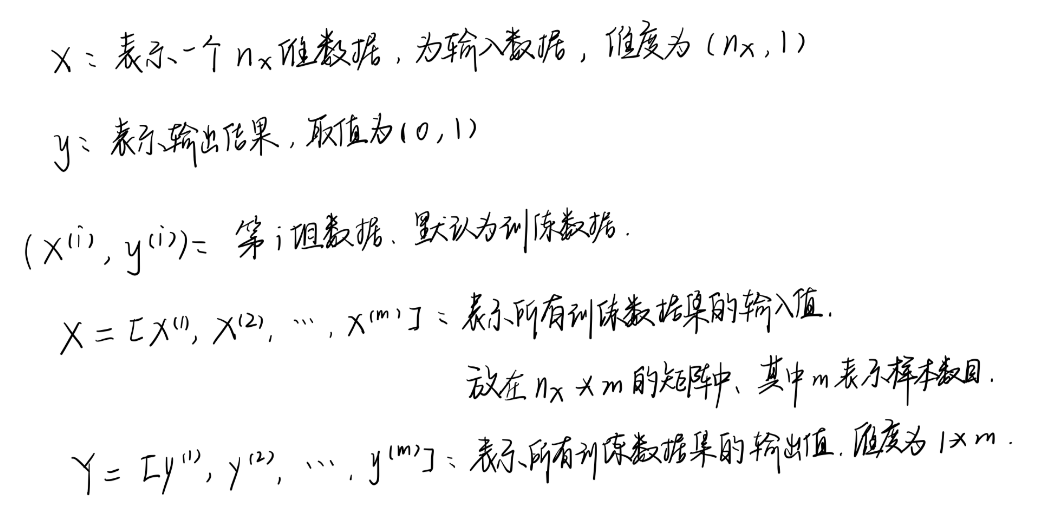 x：表示一个 nₓ维数据，为输入数据，维度为（nₓ,1）
y：表示输出结果，取值为（0,1）
(x⁽ⁱ⁾, y⁽ⁱ⁾)：第i组数据、默认为训练数据.
X = [x⁽¹⁾, x⁽²⁾, ⋯, x⁽ᵐ⁾]：表示所有训练数据集的输入值.
放在 nₓ × m 的矩阵中、其中 m 表示样本数目.
Y = [y⁽¹⁾, y⁽²⁾, ⋯, y⁽ᵐ⁾]：表示所有训练数据集的输出值. 维度为 1×m.